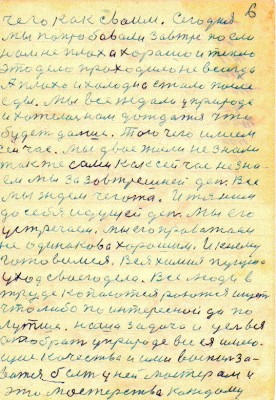 6
чего как своим. Сегодня
мы попробовали завтре после
нам не плоха хорашо и тепло
это дело проходило не всегда
А плохо и холодно стало после
еды. Мы все ждали у природе
и хотела нам дождатся что
будет далше. Того чего имеем
сейчас. Мы двое жили не знали
также сами как сейчас не зна-
ем мы за завтрешней ден. Все
мы ждем чегота. И тяним
до себя идущей ден. Мы его
устречаем, мы его праважаем
не одинакова хорошим. И к нему
готовился. Вся химия пущена
уход своего дела. Все люди в
труде копаются роются ищут
что либо по интересной да по
лутше. наша задача и цел вся
отобрат у природе все я имею-
щие качества и ими воспол-за-
ватся быт у ней мастерам и
это мастерства каждому